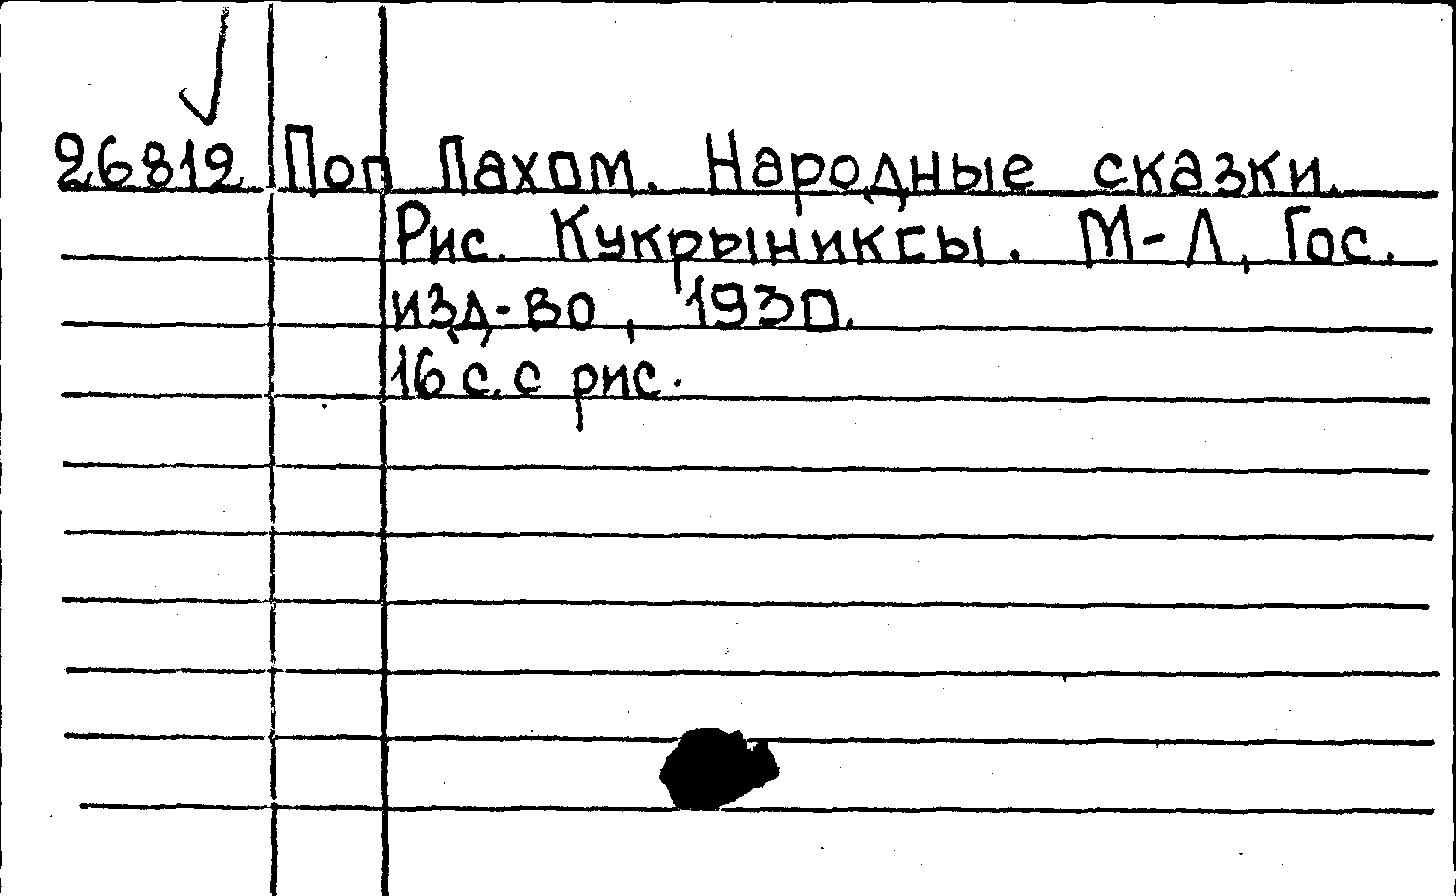 26812 Поп Пахом. Народные сказки.
Рис. Кукрыниксы. М-Л, Гос.
изд-во, 1930.
16 с. с рис.